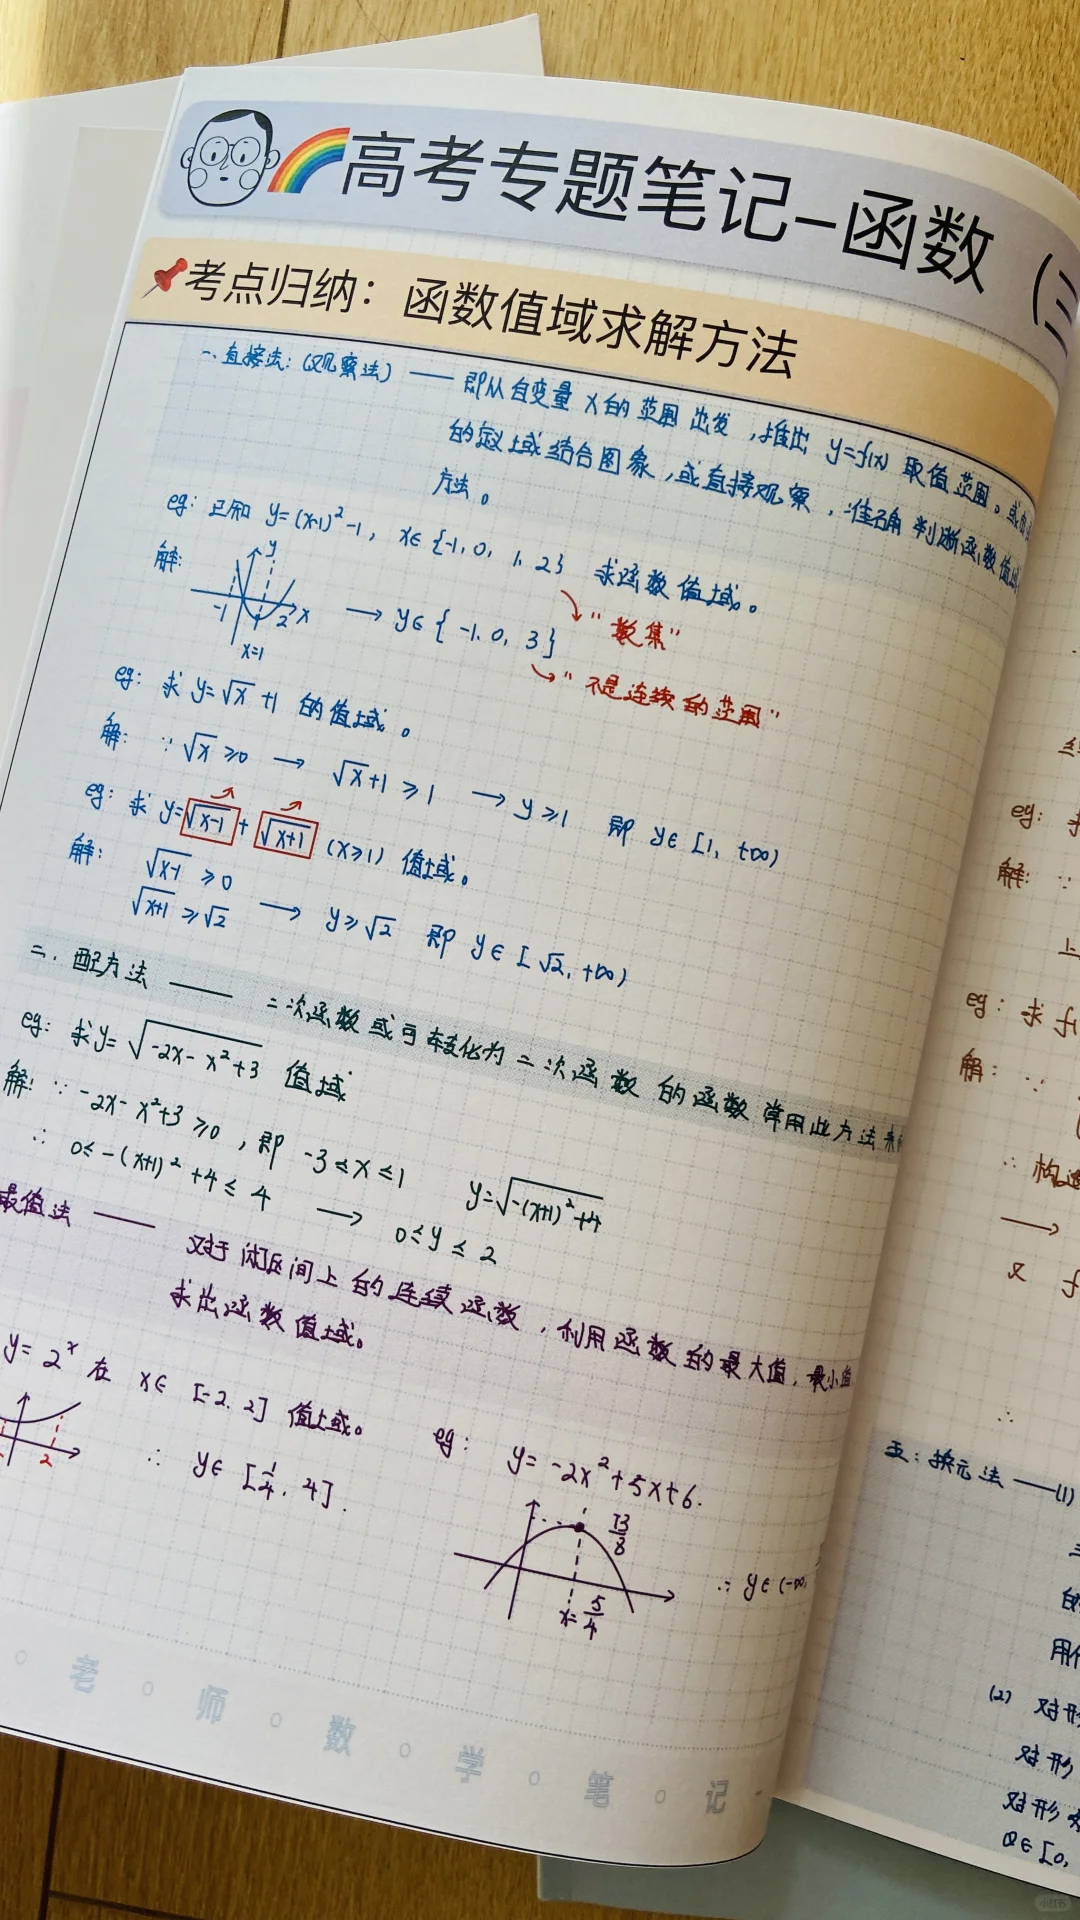 高考专题笔记-函数（三
考点归纳：函数值域求解方法
一、直接法：(观察法) —— 即从自变量 x的 范围 出发，推出 y=f(x) 取值范围。或由
的定义域结合图象，或直接观察，准确判断函数值域
方法。
eg: 已知 y=(x-1)²-1， x∈{-1, 0, 1, 2} 求函数值域。
解:
y
-1 2 x
x=1
→ y∈{-1, 0, 3}
"数集"
"不是连续的范围"
eg: 求 y=√x +1 的值域。
解: ∵ √x ≥0 → √x+1 ≥1 → y≥1 即 y∈[1, +∞)
eg: 求 y=√(x-1) + √(x+1) (x≥1) 值域。
解: √(x-1) ≥0
√(x+1) ≥√2 → y≥√2 即 y∈[√2, +∞)
二、配方法 —— 二次函数或可转化为二次函数的函数常用此方法
eg: 求y=√(-2x-x²+3) 值域
解: ∵ -2x-x²+3≥0，即 -3≤x≤1 y=√(-(x+1)²+4)
∴ 0≤-(x+1)²+4≤4 → 0≤y≤2
最值法 —— 对于闭区间上的连续函数，利用函数的最大值，最小值
求出函数值域。
y=2ˣ 在 x∈[-2, 2] 值域。
2
∴ y∈[1/4, 4].
eg: y=-2x²+5x+6.
73/8
x=5/4
∴ y∈(-∞,
老 师 数 学 笔 记 -
eg:
解: ∵
上
eg: 求 f(
解: ∵
∴ 构造
→
又 f
∴
五：换元法 ——(1)
用
(2) 对形
对形
对形
[0,
小红书